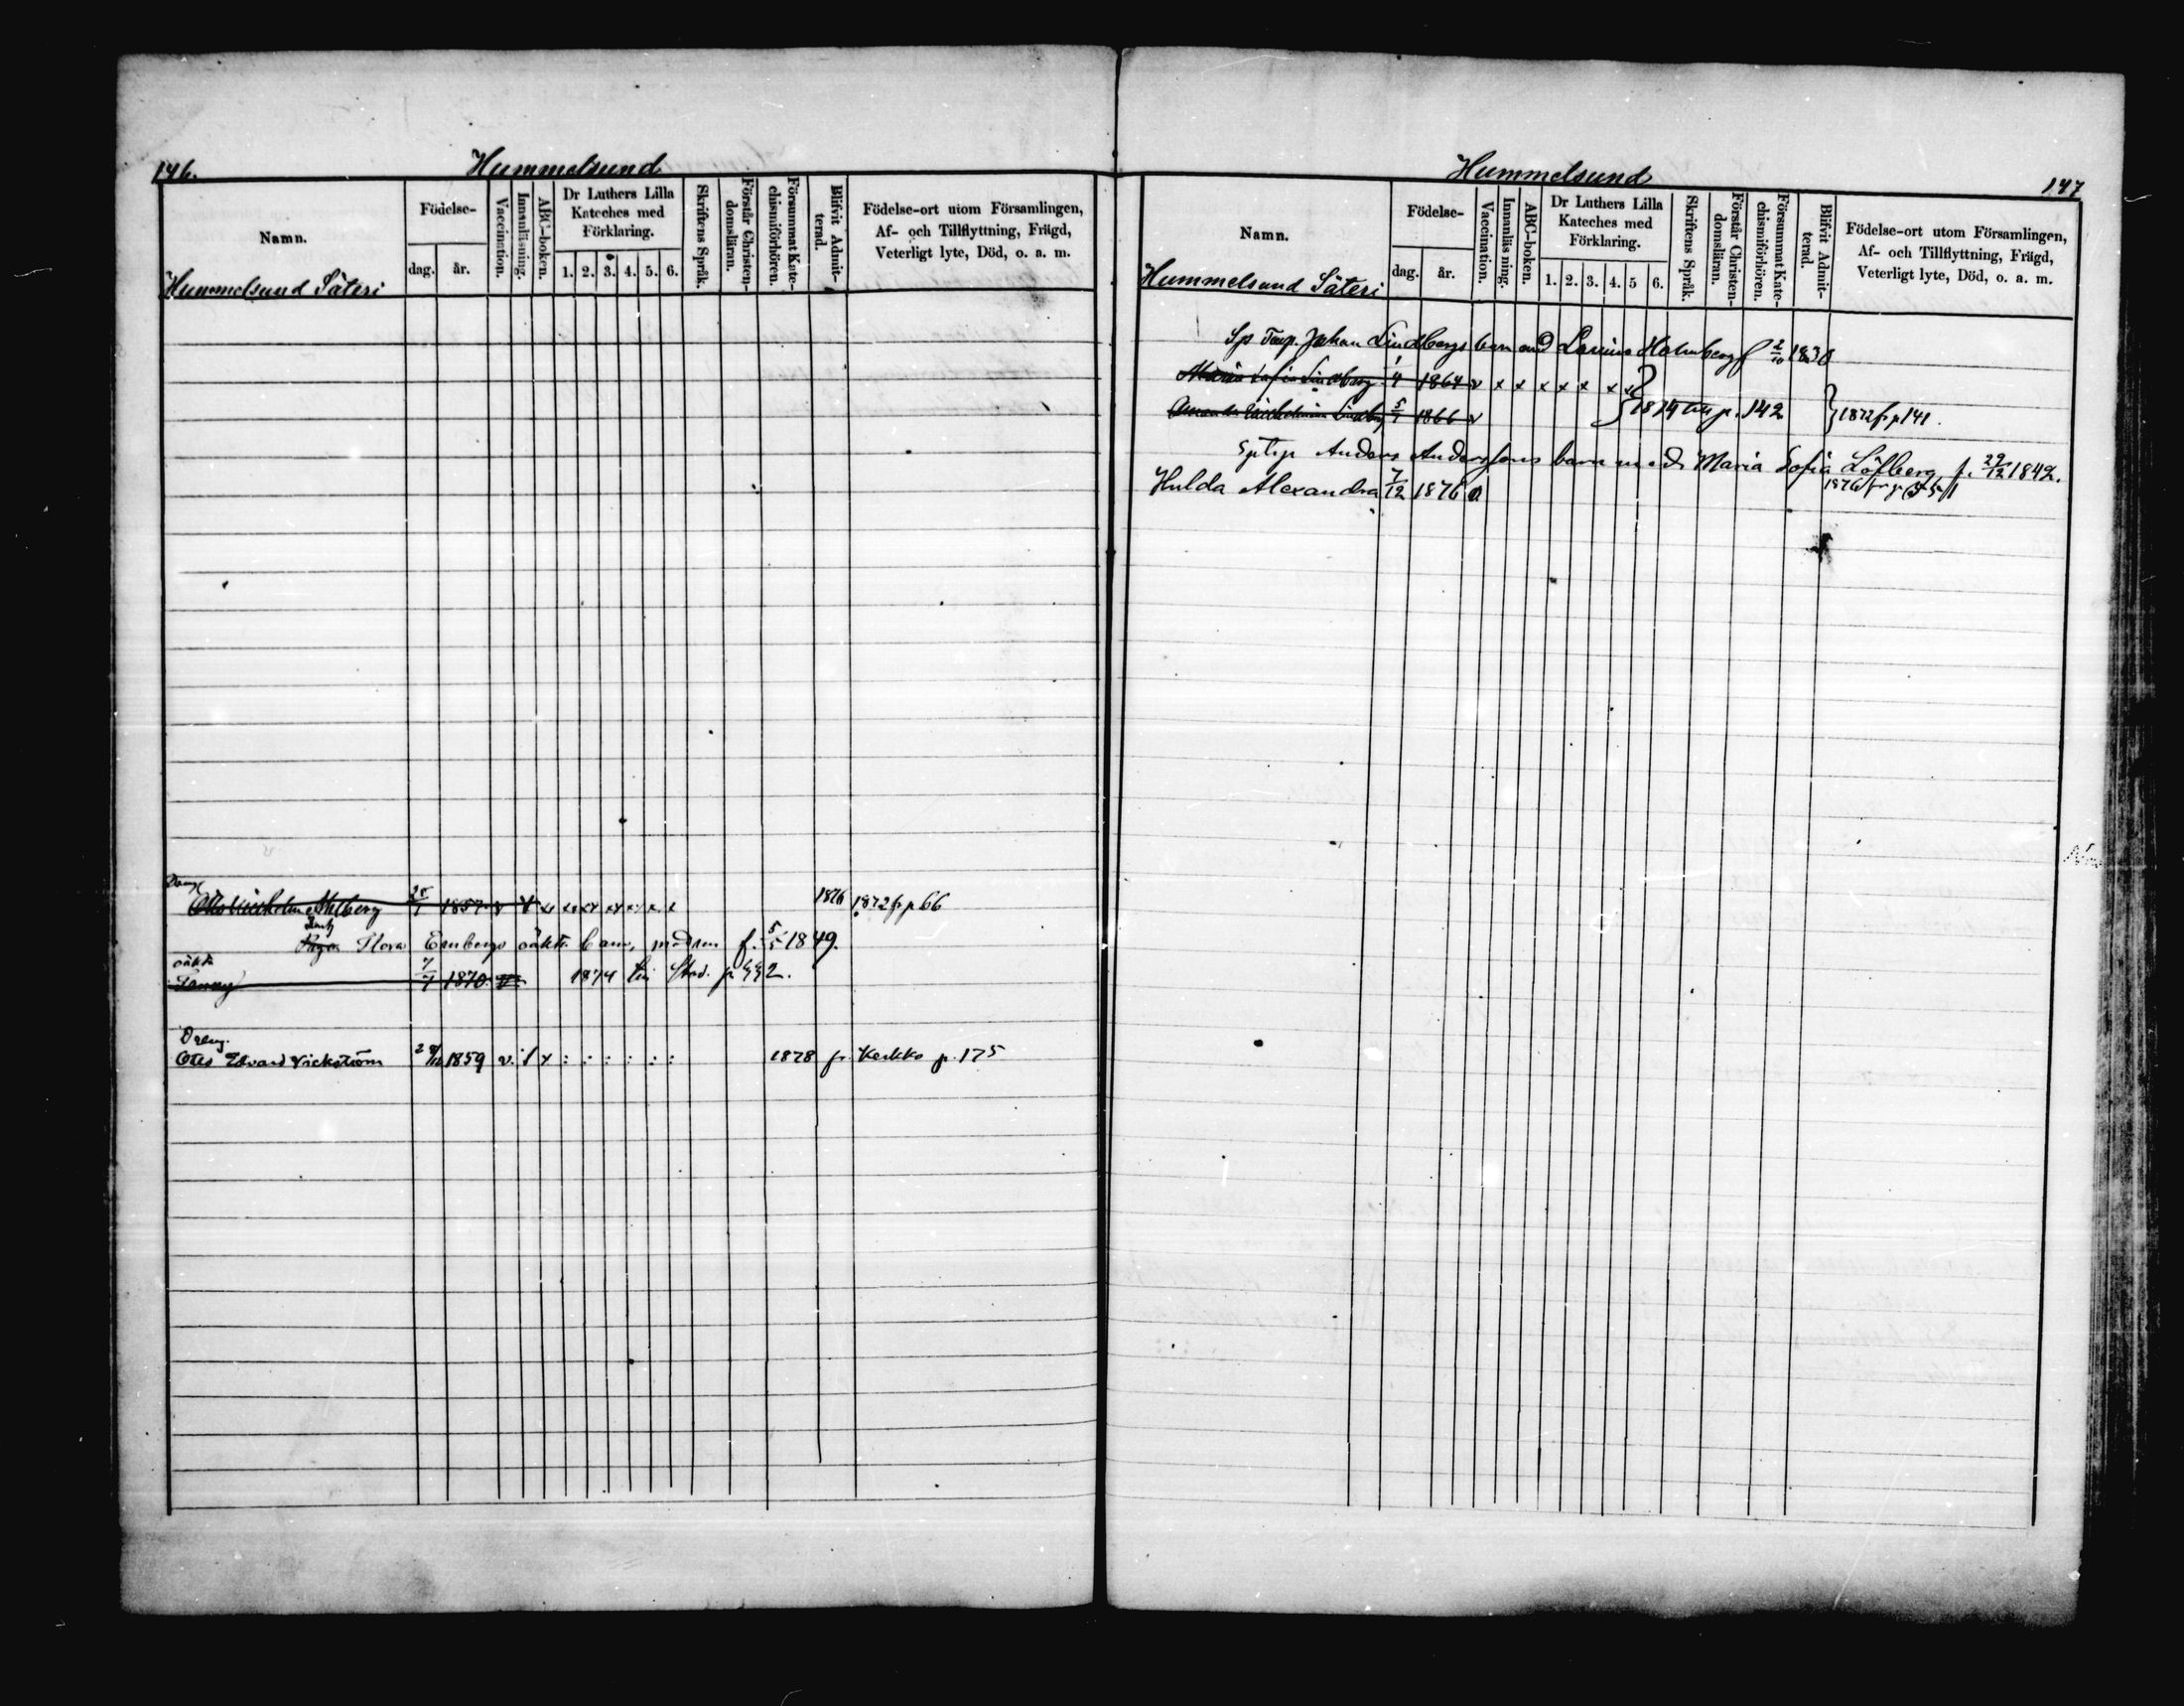 146.
Hummelsund
Namn.
Födelse-
dag. år.
Vaccination.
Innanläsning.
ABC-boken.
Dr Luthers Lilla
Kateches med
Förklaring.
1. 2. 3. 4. 5. 6.
Skriftens Språk.
Förstår Christen-
domsläran.
Försummat Kate-
chismiförhören.
Blifvit Admit-
terad.
Födelse-ort utom Församlingen,
Af- och Tillflyttning, Frägd,
Veterligt lyte, Död, o. a. m.
Hummelsund Säteri
Otto Ahlberg 1857 v 1876 1872 fr p 66
Flora Enbergs oäkta barn, modren f. 5/5 1849.
oäkta
Fanny 1870 1874 p 442.
Dreng.
Otto Edvard Vickström 1859 v. 1878 fr. Kerkko p. 175
Hummelsund
147
Namn.
Födelse-
dag. år.
Vaccination.
Innanläs ning.
ABC-boken.
Dr Luthers Lilla
Kateches med
Förklaring.
1. 2. 3. 4. 5 6.
Skriftens Språk.
Förstår Christen-
domsläran.
Försummat Kate-
chismiförhören.
Blifvit Admit-
terad.
Födelse-ort utom Församlingen,
Af- och Tillflyttning, Frägd,
Veterligt lyte, Död, o. a. m.
Hummelsund Säteri
Johan Lindbergs barn med Holmberg f 2/10 1830
Maria Sofia Lindberg 1864 v x x x x x x x
Lindberg 5/7 1866 v } 1874 p. 142 } 1872 fr p 141.
Anders Anderssons barn med Maria Sofia Löfberg f. 29/12 1842.
Hulda Alexandra 7/12 1876